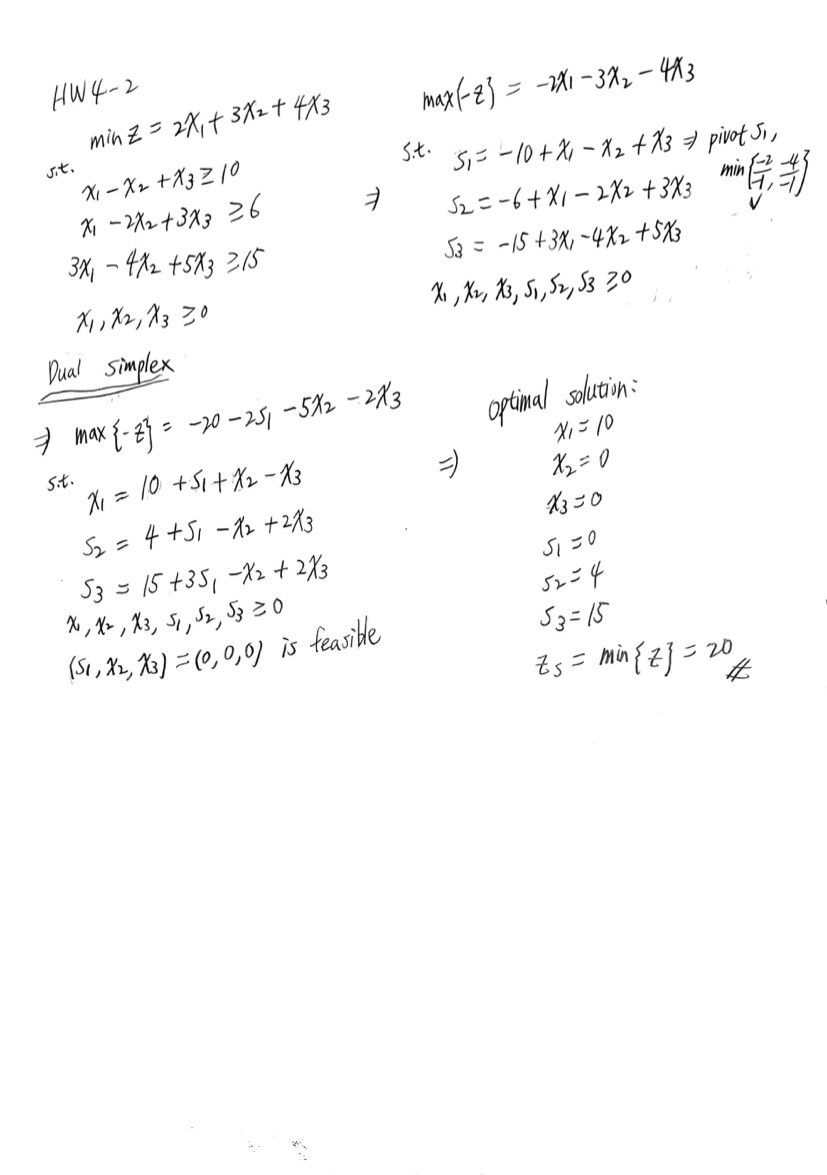 HW4-2
min z = 2x₁ + 3x₂ + 4x₃
s.t.
x₁ - x₂ + x₃ ≥ 10
x₁ - 2x₂ + 3x₃ ≥ 6
3x₁ - 4x₂ + 5x₃ ≥ 15
x₁, x₂, x₃ ≥ 0
⇒
max{-z} = -2x₁ - 3x₂ - 4x₃
s.t. s₁ = -10 + x₁ - x₂ + x₃ ⇒ pivot s₁,
min{-2/-1, -4/-1}
✓
s₂ = -6 + x₁ - 2x₂ + 3x₃
s₃ = -15 + 3x₁ - 4x₂ + 5x₃
x₁, x₂, x₃, s₁, s₂, s₃ ≥ 0
Dual simplex
⇒ max{-z} = -20 - 2s₁ - 5x₂ - 2x₃
s.t.
x₁ = 10 + s₁ + x₂ - x₃
s₂ = 4 + s₁ - x₂ + 2x₃
s₃ = 15 + 3s₁ - x₂ + 2x₃
x₁, x₂, x₃, s₁, s₂, s₃ ≥ 0
(s₁, x₂, x₃) = (0, 0, 0) is feasible
⇒
optimal solution:
x₁ = 10
x₂ = 0
x₃ = 0
s₁ = 0
s₂ = 4
s₃ = 15
zs = min{z} = 20 #